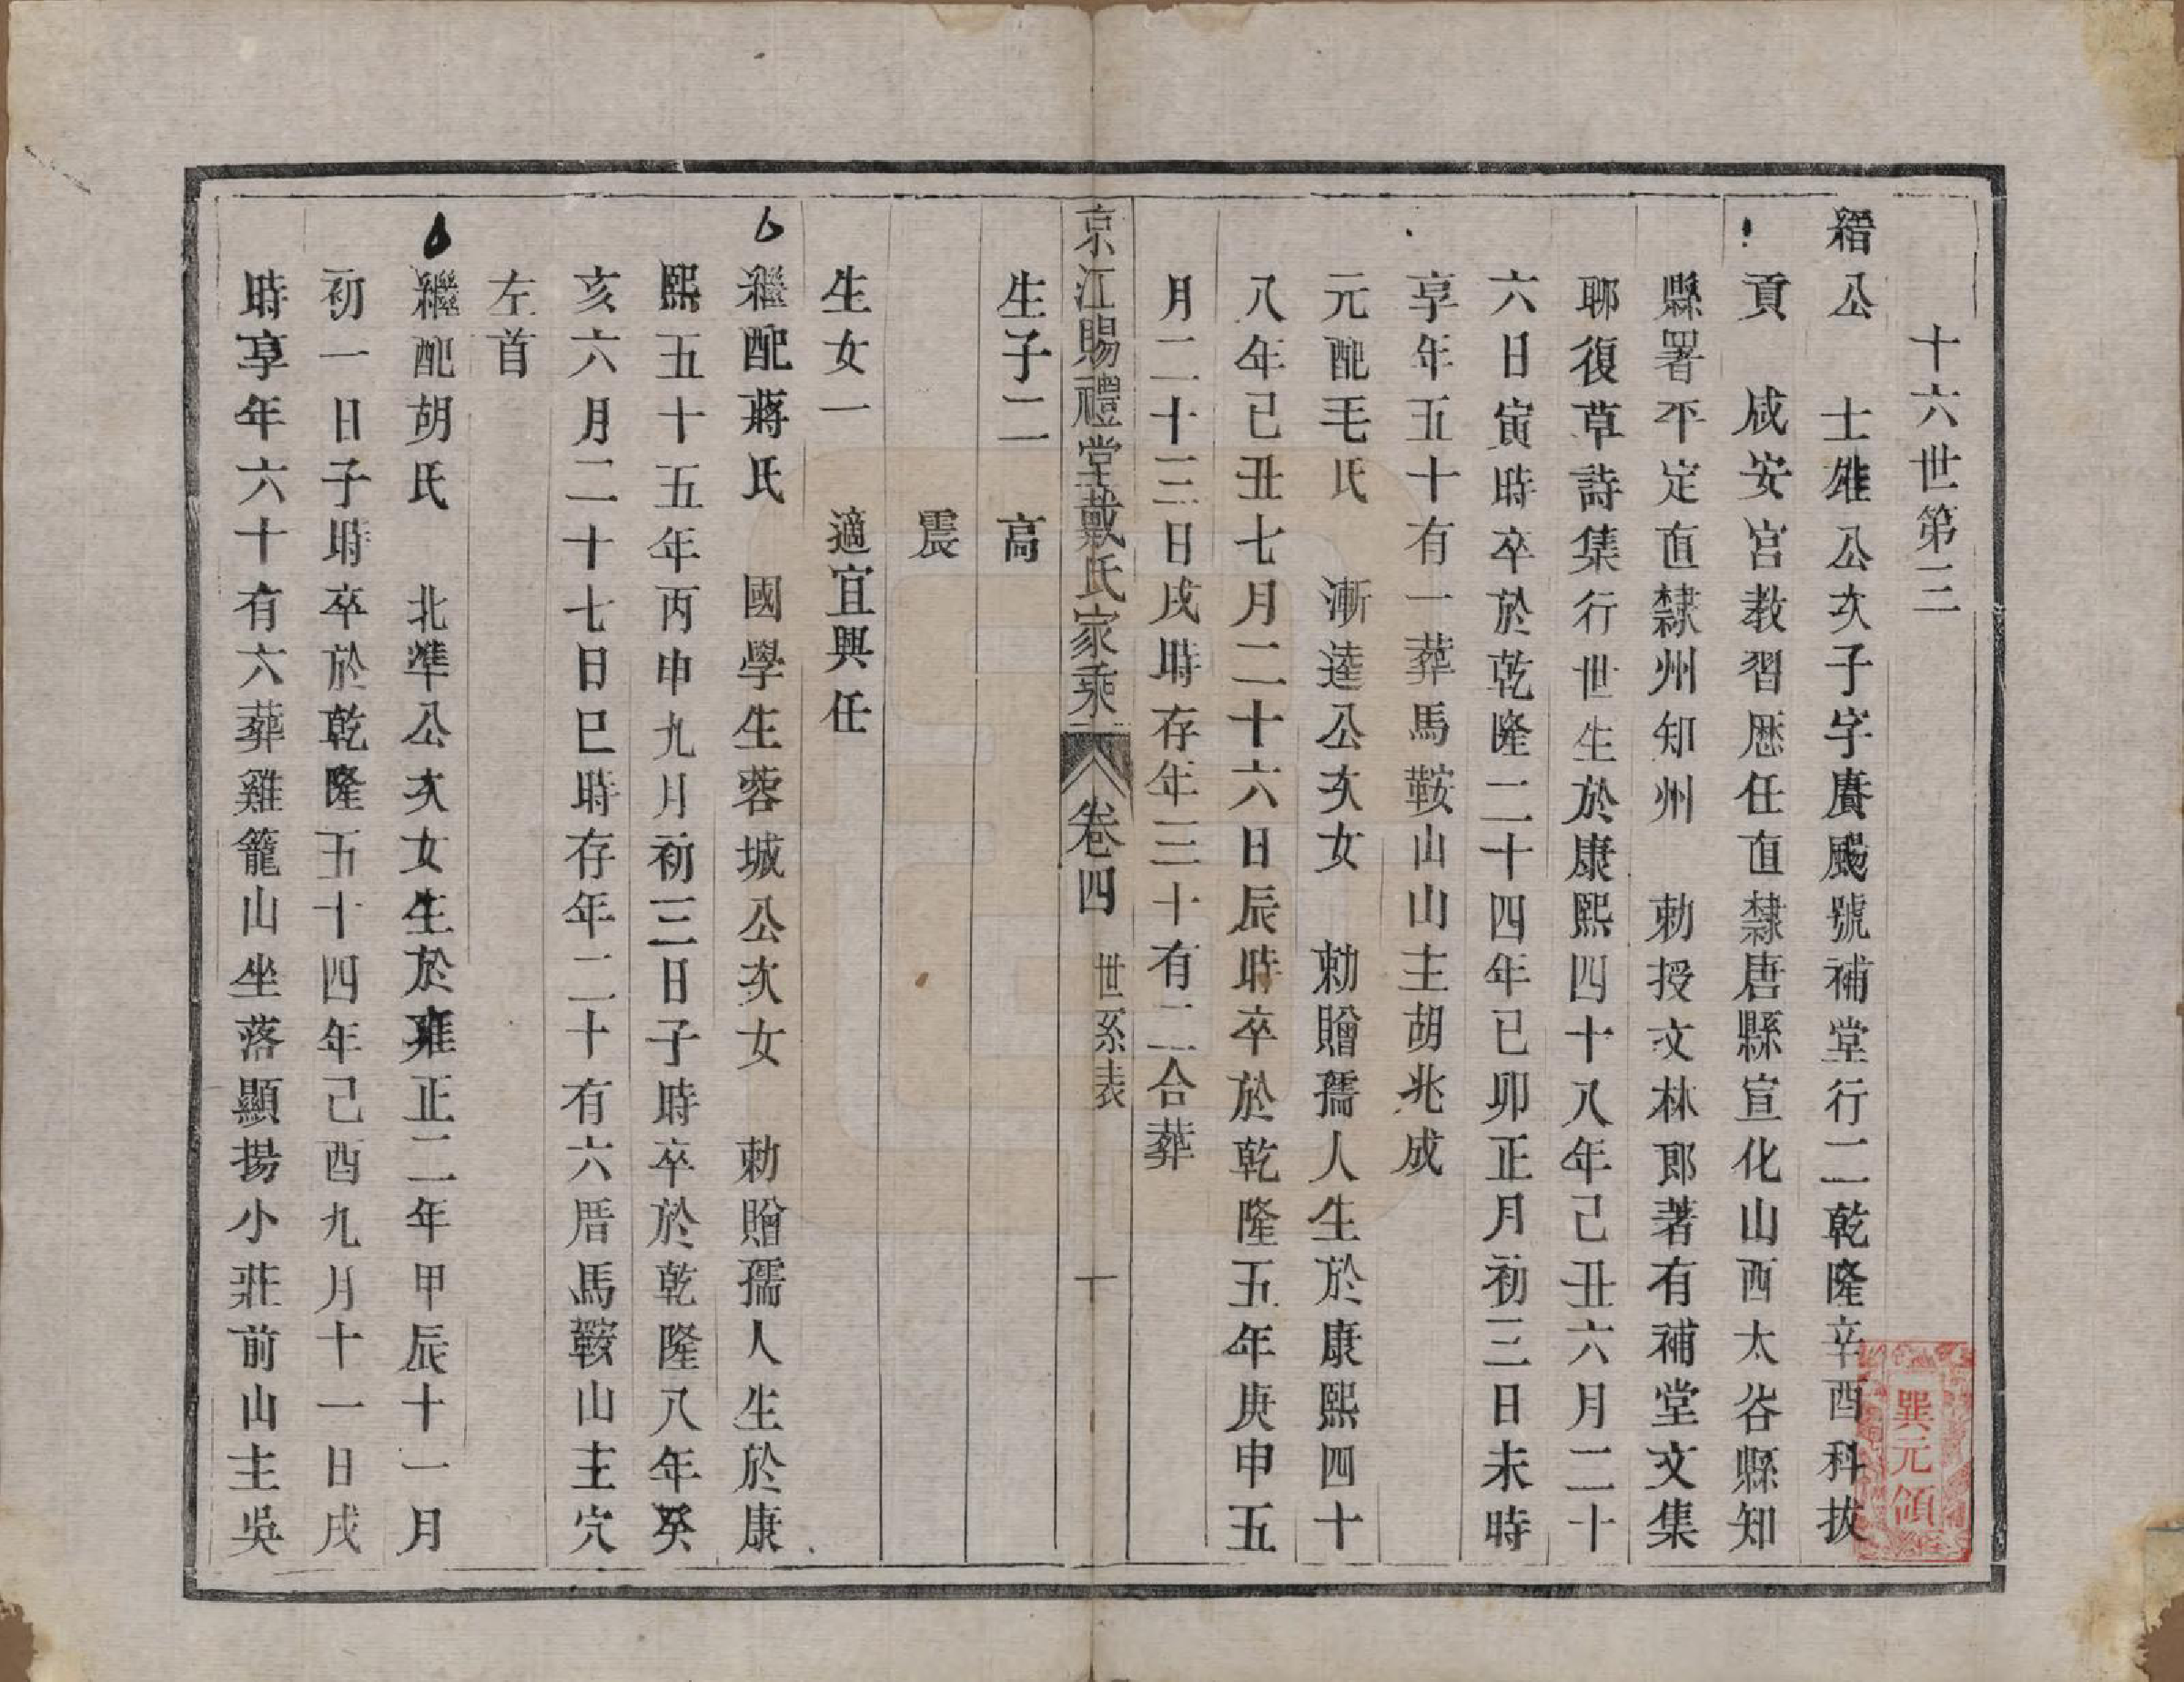 十六世第三
縉公　士雄公次子字賡颺號補堂行二乾隆辛酉科拔
貢　咸安宮教習歷任直隸唐縣宣化山西太谷縣知
縣署平定直隸州知州　勅授文林郎著有補堂文集
聊復草詩集行世生於康熙四十八年己丑六月二十
六日寅時卒於乾隆二十四年己卯正月初三日未時
享年五十有一葬馬鞍山山主胡兆成
元配毛氏　漸逵公次女　勅贈孺人生於康熙四十
八年己丑七月二十六日辰時卒於乾隆五年庚申五
月二十三日戌時存年三十有二合葬
京江賜禮堂戴氏家乘　卷四　世系表　十
生子二　高
震
生女一　適宜興任
繼配蔣氏　國學生蓉城公次女　勅贈孺人生於康
熙五十五年丙申九月初三日子時卒於乾隆八年癸
亥六月二十七日巳時存年二十有六厝馬鞍山主穴
左首
繼配胡氏　北準公次女生於雍正二年甲辰十一月
初一日子時卒於乾隆五十四年己酉九月十一日戌
時享年六十有六葬雞籠山坐落顯揚小莊前山主吳
巽元領